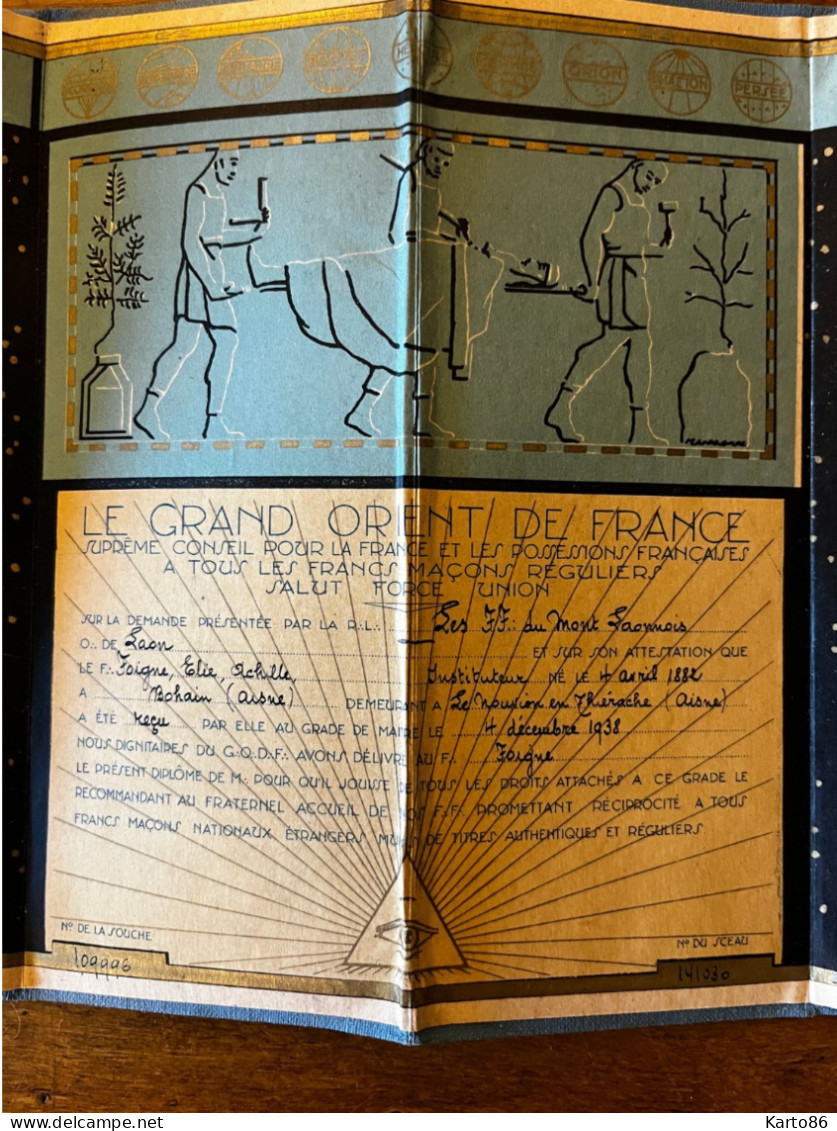 ORION
PERSÉE
LE GRAND ORIENT DE FRANCE
SUPRÊME CONSEIL POUR LA FRANCE ET LES POSSESSIONS FRANÇAISES
A TOUS LES FRANCS MAÇONS RÉGULIERS
SALUT FORCE UNION
SUR LA DEMANDE PRÉSENTÉE PAR LA R∴L∴ Les FF∴ du Mont Laonnois
O∴ DE Laon ET SUR SON ATTESTATION QUE
LE F∴ Foigne, Elie, Achille, Instituteur NÉ LE 4 avril 1882
A Bohain (Aisne) DEMEURANT A Le Nouvion en Thiérache (Aisne)
A ÉTÉ reçu PAR ELLE AU GRADE DE MAITRE LE 4 décembre 1938
NOUS DIGNITAIRES DU G∴O∴D∴F∴ AVONS DÉLIVRÉ AU F∴ Foigne
LE PRÉSENT DIPLÔME DE M∴ POUR QU'IL JOUISSE DE TOUS LES DROITS ATTACHÉS A CE GRADE LE
RECOMMANDANT AU FRATERNEL ACCUEIL DE NOS F.F. PROMETTANT RÉCIPROCITÉ A TOUS
FRANCS MAÇONS NATIONAUX ÉTRANGERS MUNIS DE TITRES AUTHENTIQUES ET RÉGULIERS.
No DE LA SOUCHE
109996
No DU SCEAU
141030
Karto86